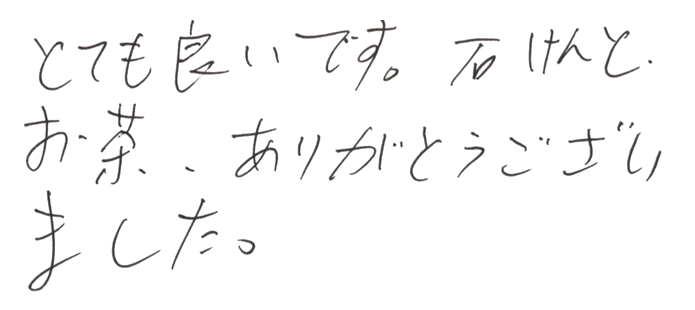 とても良いです。石けんと、
お茶、、ありがとうござい
ました。